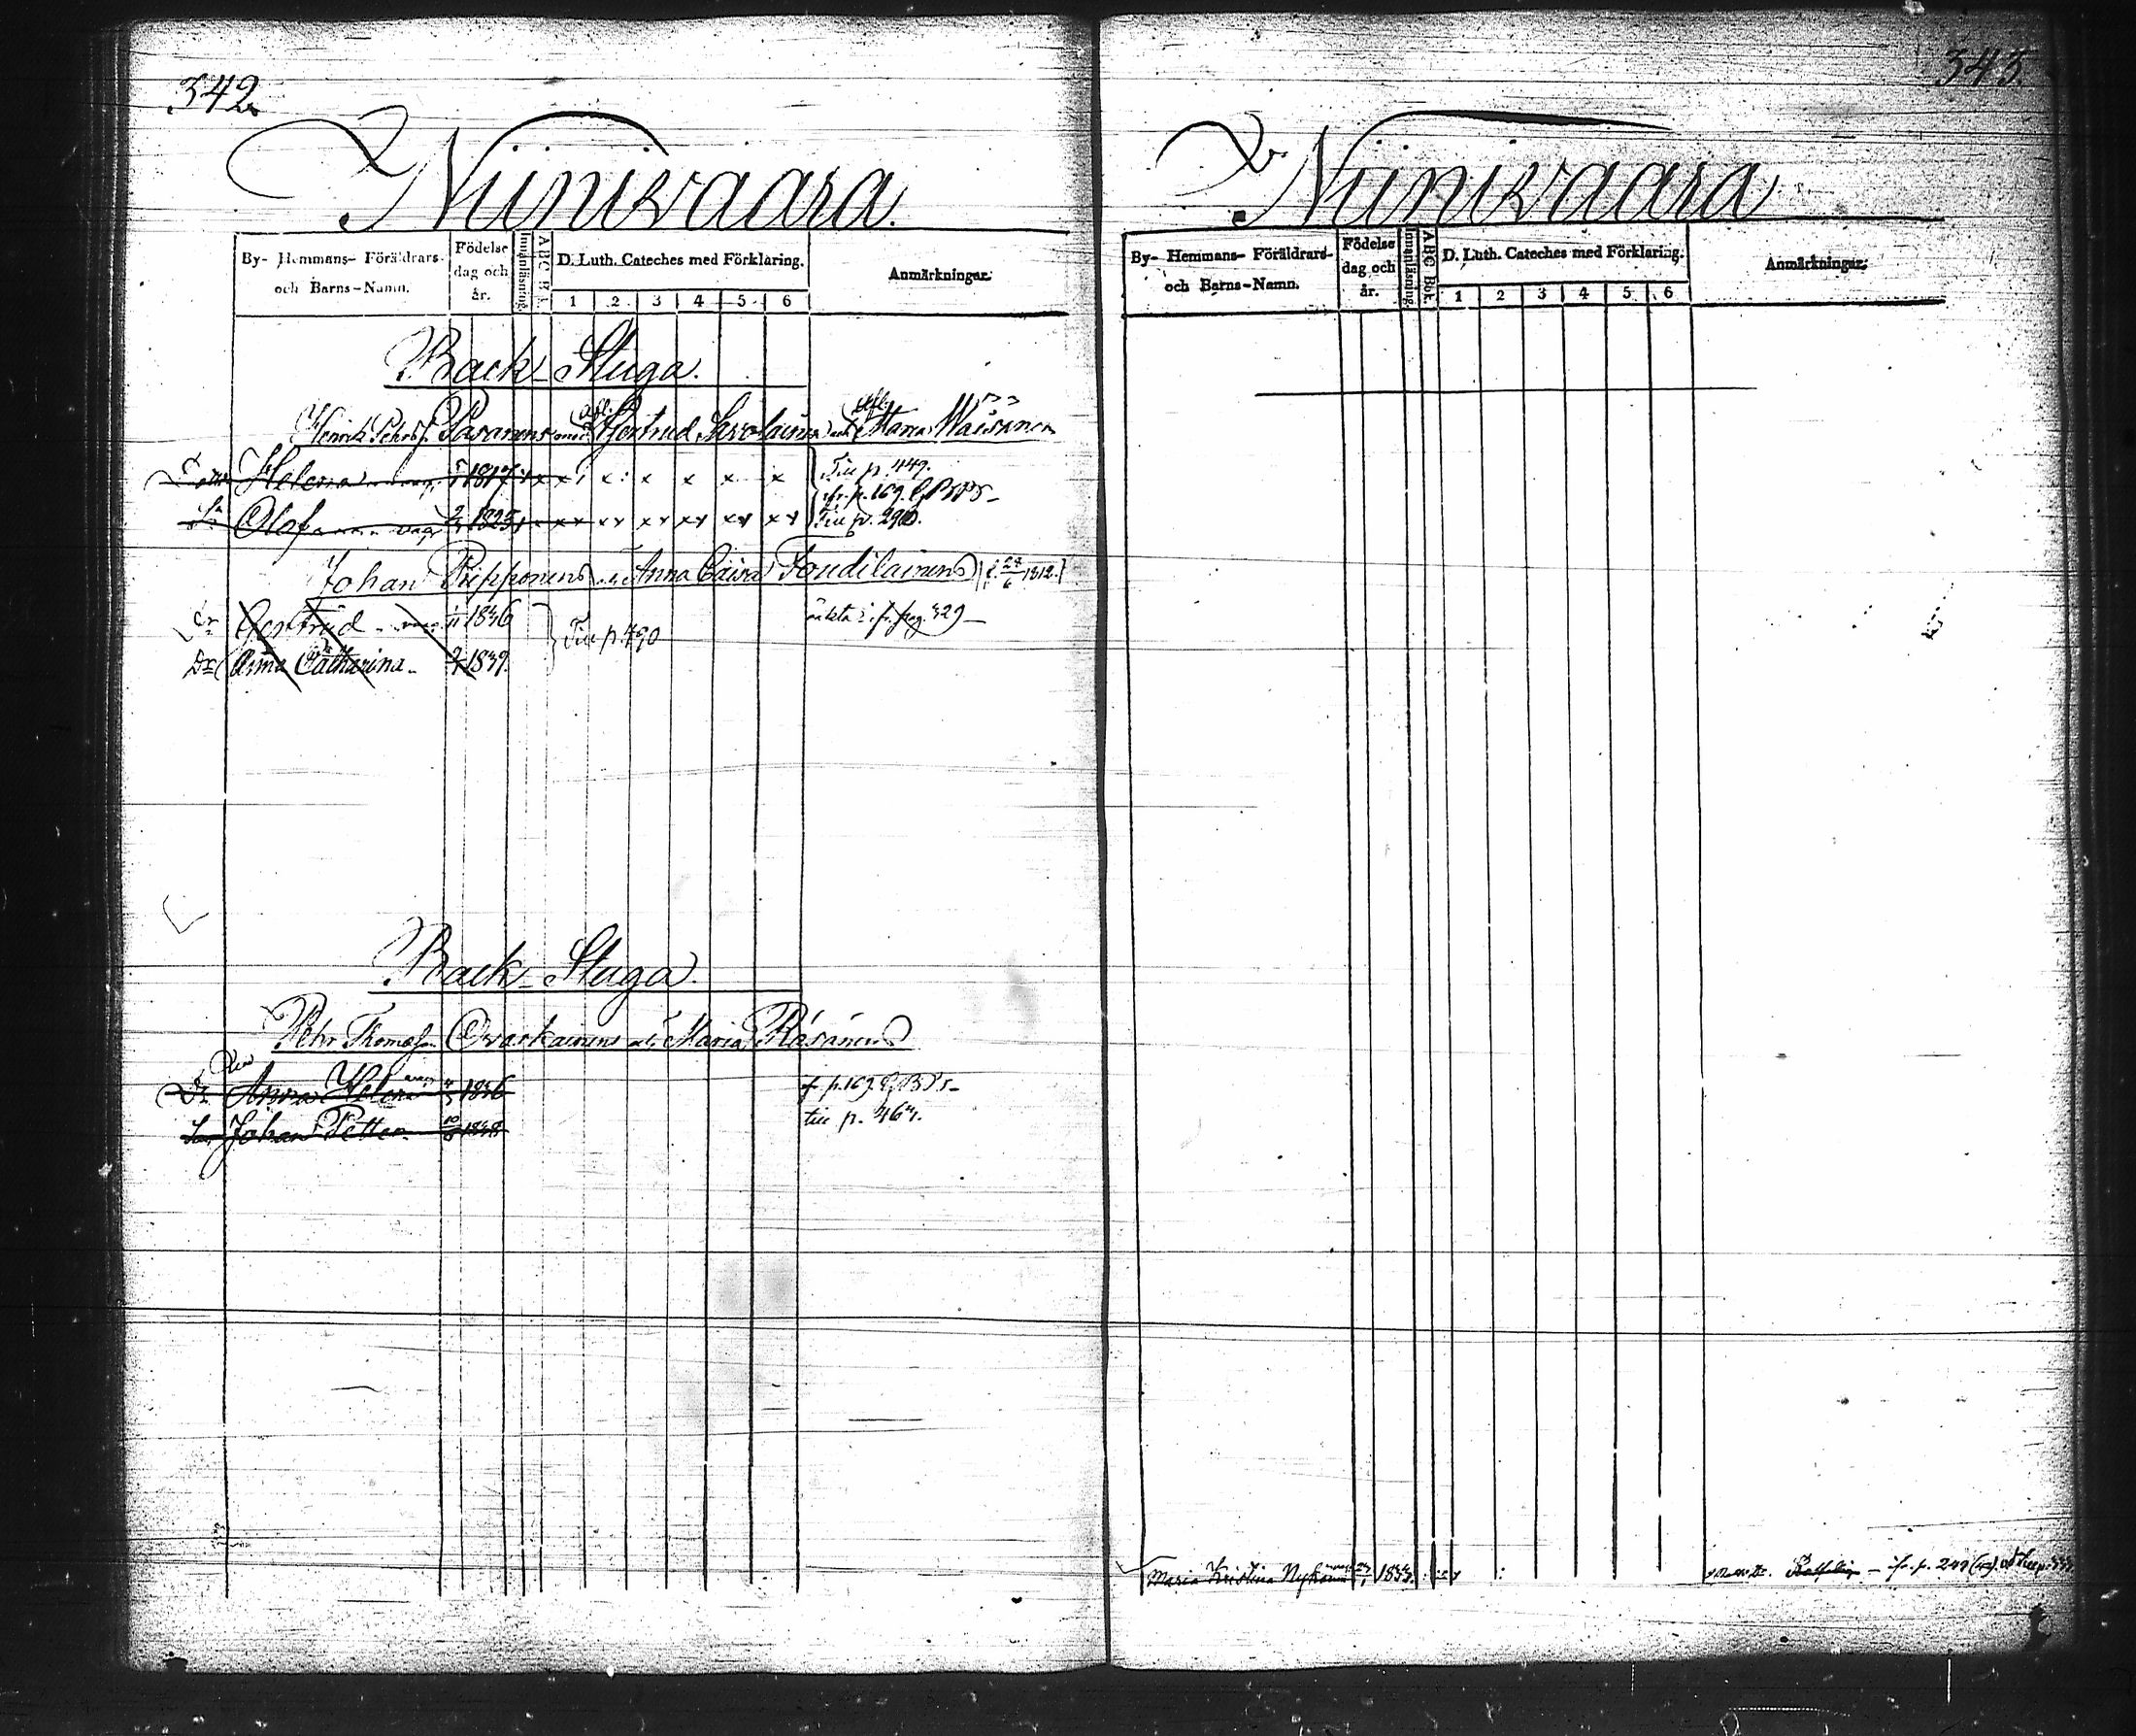 342.
Niinivaara.
By- Hemmans- Föräldrars- och Barns-Namn.
Födelse dag och år.
Innanläsning.
A B C B k.
D. Luth. Cateches med Förklaring.
1 2 3 4 5 6
Anmärkningar.
Back-Stuga.
Henrik Pehrsf. Pasanens Afl. Gertrud Savolainen Afl. Maria Wäisänen
Helena 1817 x x x x x x x Till p. 449.
p. 169.
Olof 1825 xx xx xx xx xx xx Till p. 290.
Johan Piipponens Anna Caisa Toudilainens f. 24/6 1812.
Gertrud 1846 p. pag. 329
Till p 490
Dr Anna Catharina 1849.
Back-Stuga.
Pehr Thomass. Ovaskainens Maria Räsänens
Dr Anna Helena 1846 p. 169.
Johan Petter 10 1848 till p. 464.
343.
Niinivaara
By- Hemmans- Föräldrars- och Barns-Namn.
Födelse dag och år.
Innanläsning.
A B C Bok.
D. Luth. Cateches med Förklaring.
1 2 3 4 5 6
Anmärkningar.
Maria Kristina Nykänen p. 249